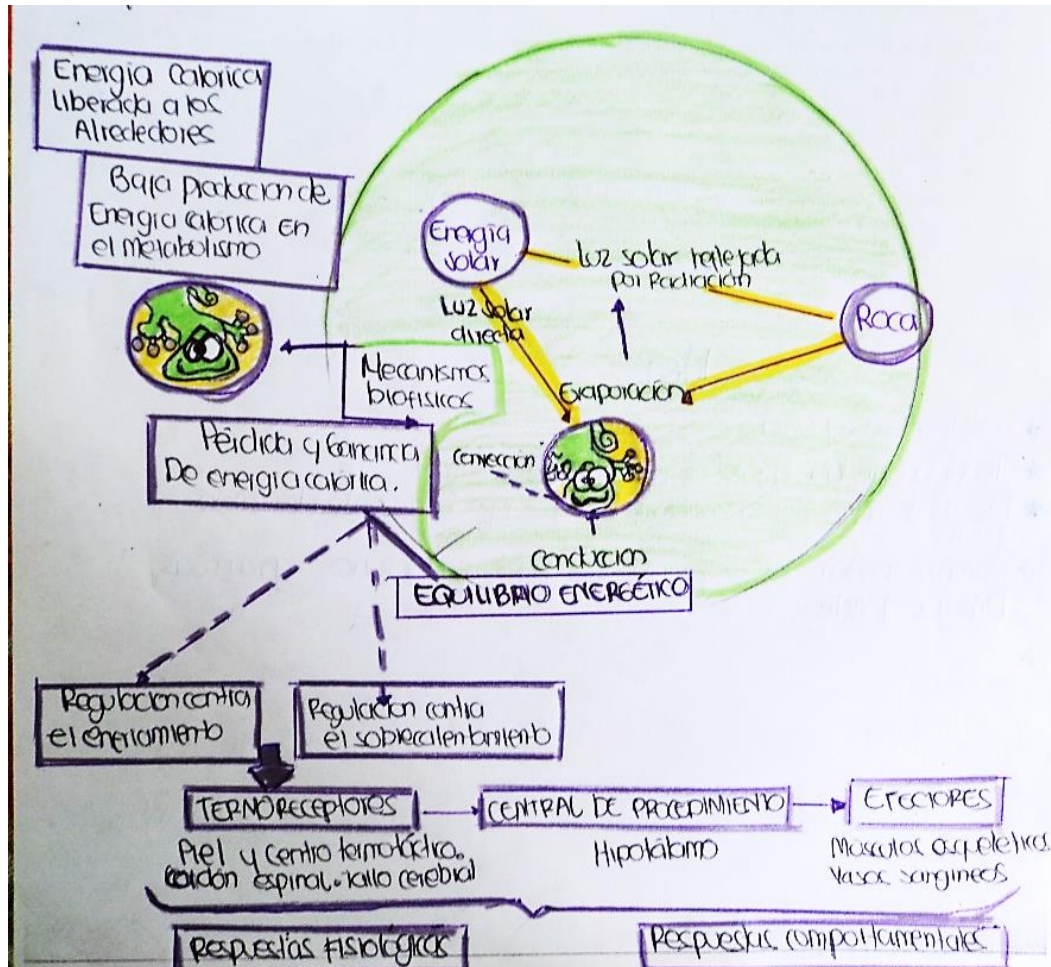 Energia Calorica
liberada a los
Alrededores
Baja producion de
Energia calorica en
el metabolismo
Energia
solar
luz solar reflejada
por Radiación
Luz solar
directa
Roca
Mecanismos
biofisicos
Evaporación
Pérdida y Ganancia
De energia calorica.
Convección
Conduccion
EQUILIBRIO ENERGÉTICO
Regulacion contra
el enfriamiento
Regulacion contra
el sobrecalentamiento
TERNORECEPTORES
CENTRAL DE PROCEDIMIENTO
EFECTORES
Piel y centro termotáctico.
Cordón espinal. tallo cerebral
Hipotálamo
Musculos esqueletico
Vasos sangineos
Respuestas Fisiológicas
Respuestas comportamentales